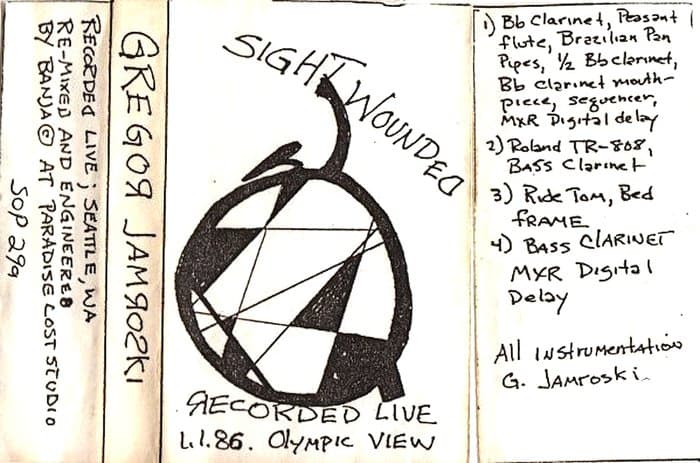 RECORDED LIVE; SEATTLE, WA
RE-MIXED AND ENGINEERED
BY BANJA@ AT PARADISE LOST STUDIO
SOP 299
GREGOR JAMROSKI
SIGHT WOUNDED
RECORDED LIVE
1.1.86. OLYMPIC VIEW
1) Bb Clarinet, Peasant
flute, Brazilian Pan
Pipes, 1/2 Bb clarinet,
Bb clarinet mouth-
piece, sequencer,
MXR Digital delay
2) Roland TR-808,
BASS Clarinet
3) Ride Tom, Bed
FRAME
4) BASS CLARINET
MXR Digital
Delay
All INStrumentation
G. Jamroski